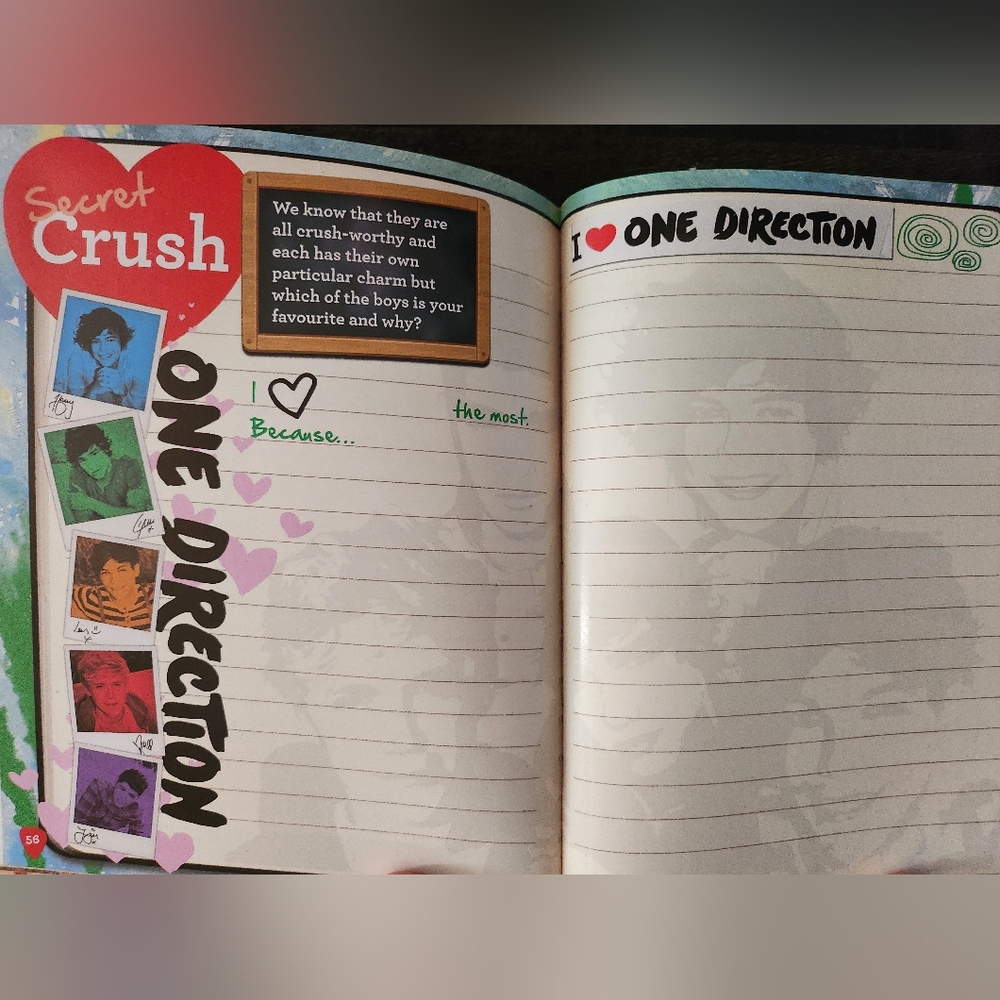 Secret
Crush
We know that they are
all crush-worthy and
each has their own
particular charm but
which of the boys is your
favourite and why?
I
the most.
Because...
ONE DIRECTION
56
I ❤ ONE DIRECTION